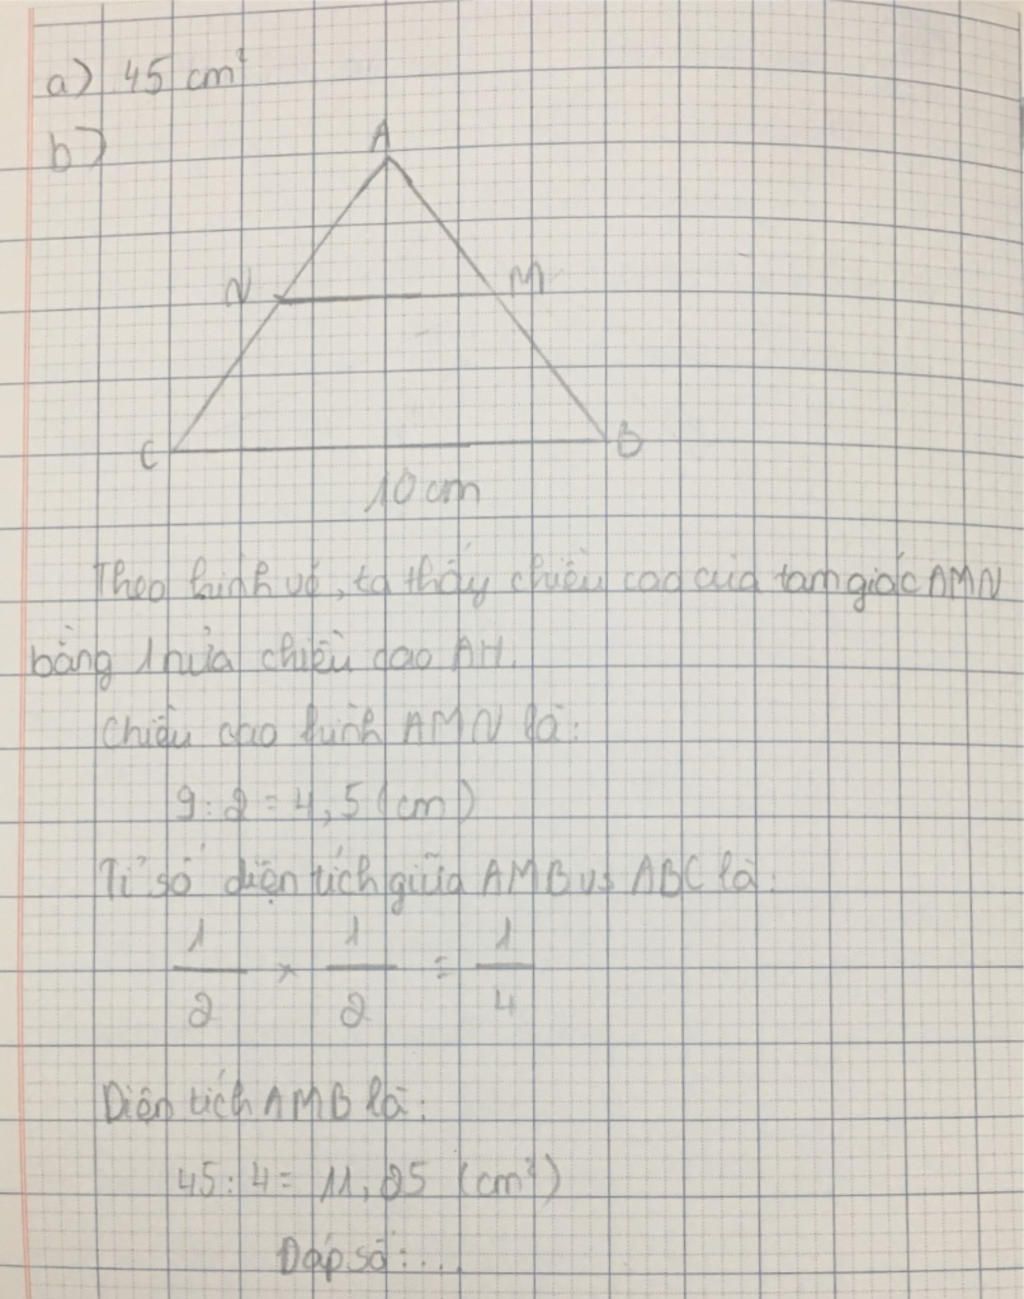 a) 45 cm²
b)
A
N M
C B
10 cm
Theo hình vẽ, ta thấy chiều cao của tam giác AMN
bằng 1 nửa chiều cao AH.
Chiều cao hình AMN là:
9 : 2 = 4,5 (cm)
Tỉ số diện tích giữa AMB vs ABC là:
1/2 × 1/2 = 1/4
Diện tích AMB là:
45 : 4 = 11,25 (cm²)
Đáp số: ...